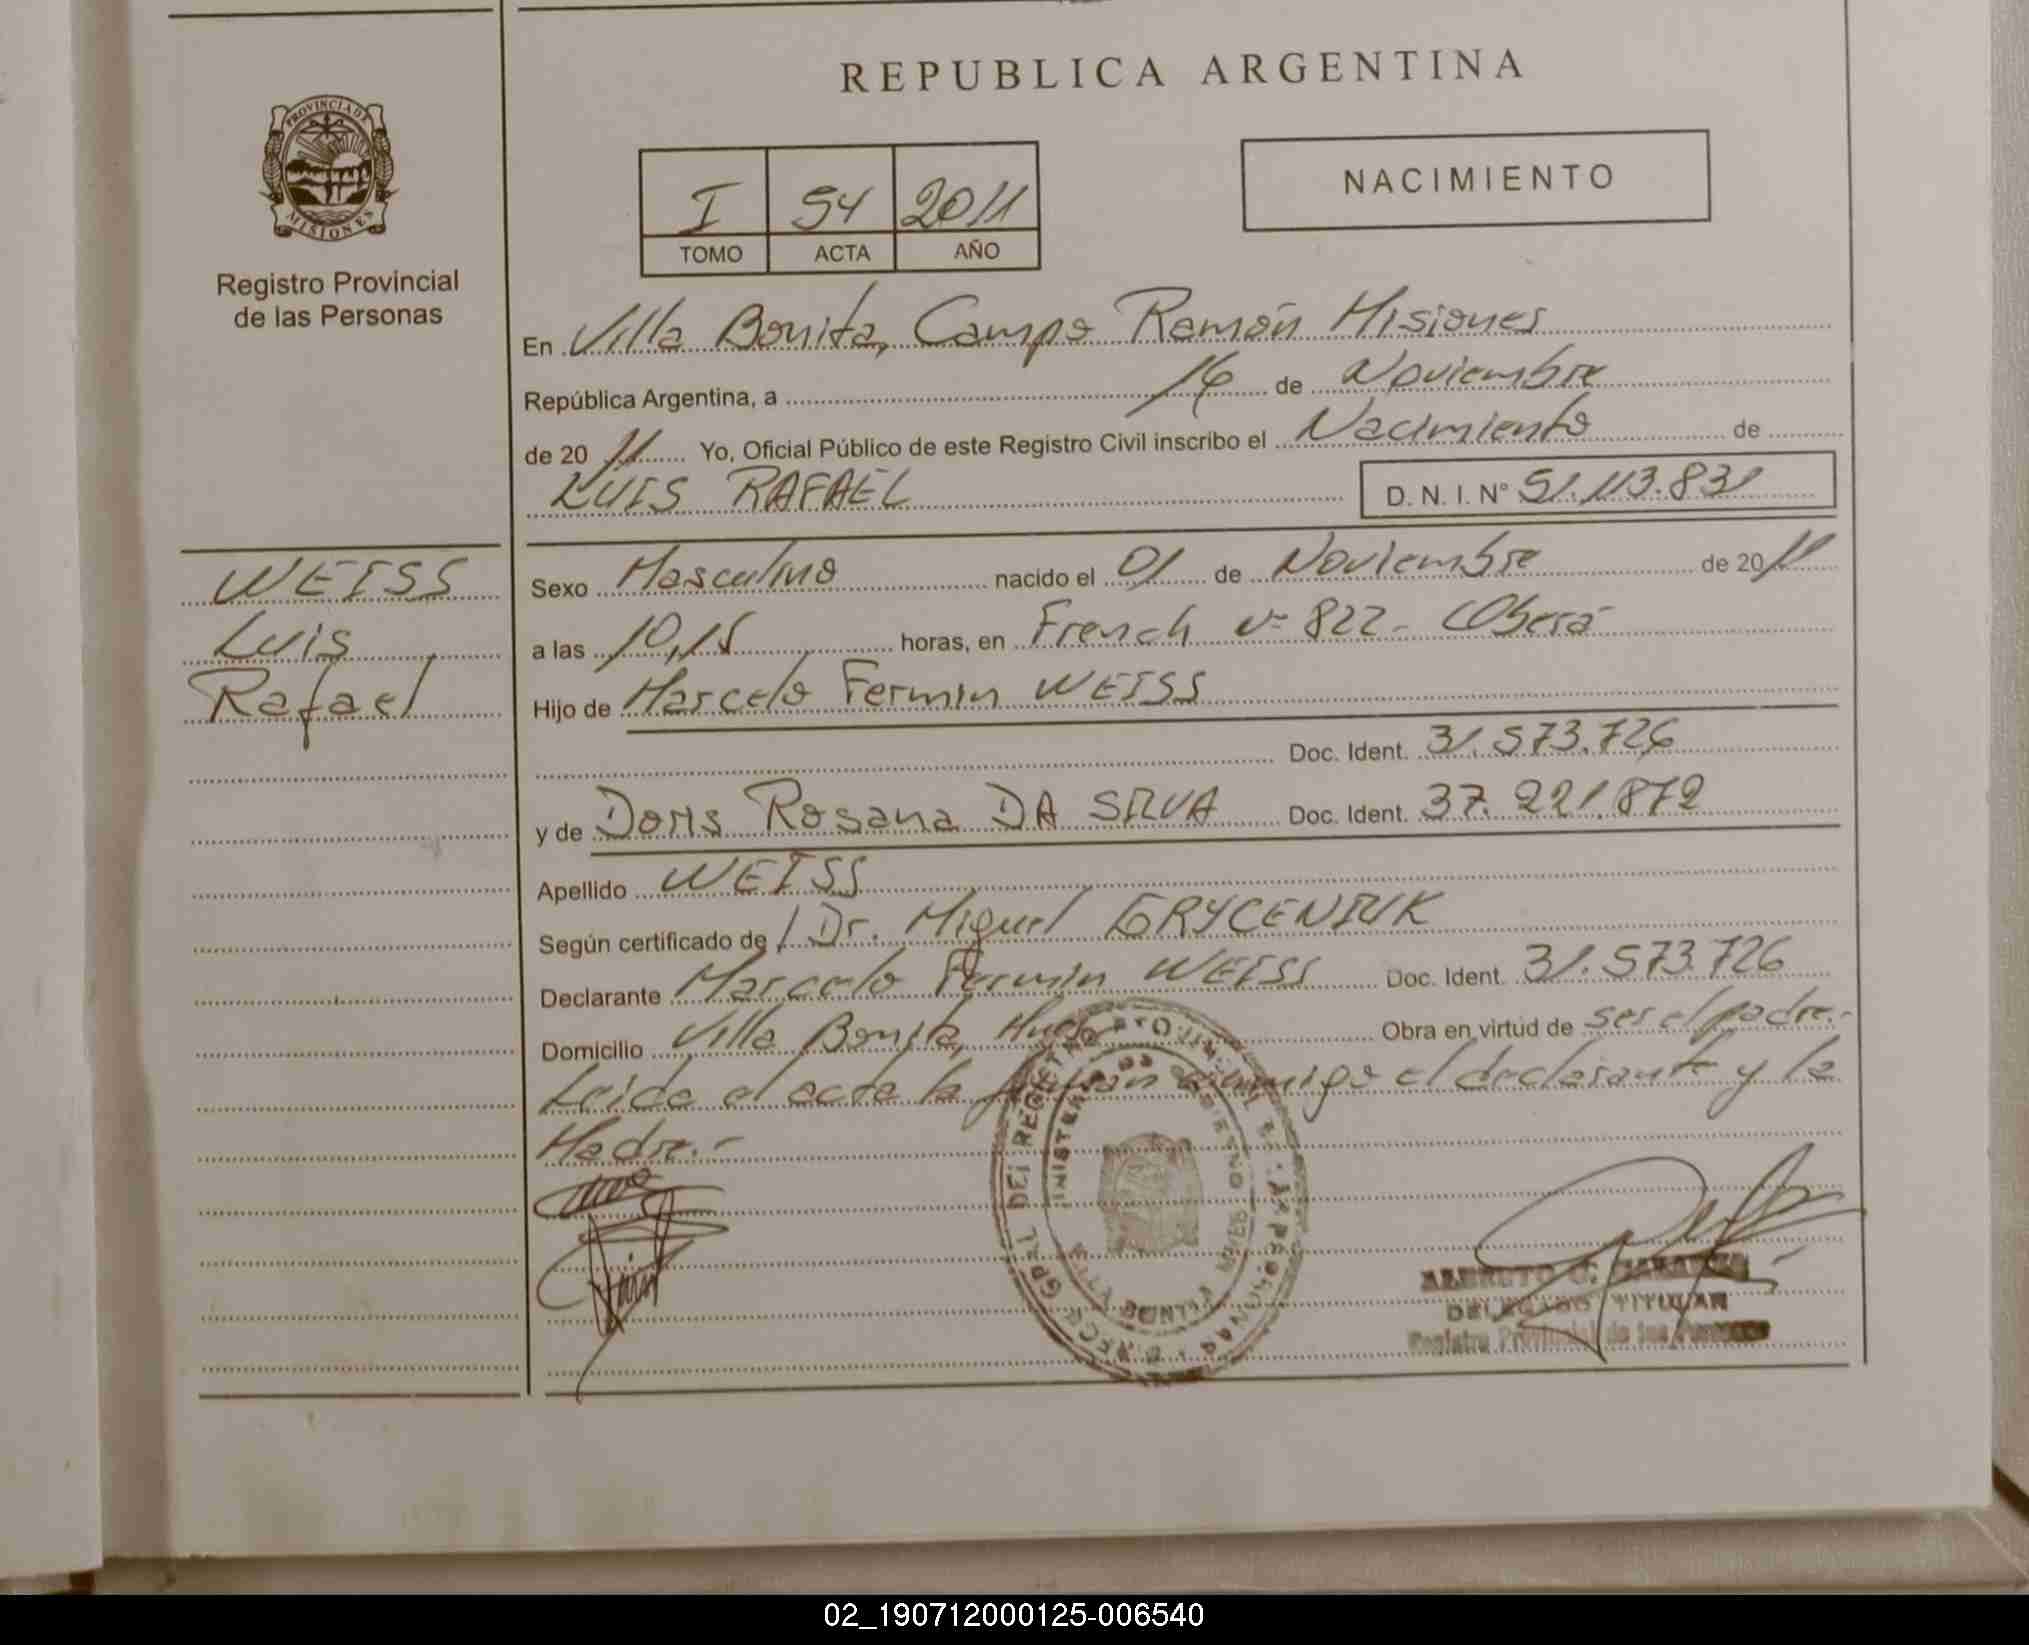 REPUBLICA ARGENTINA
PROVINCIA DE MISIONES
Registro Provincial
de las Personas
I 54 2011
TOMO ACTA AÑO
NACIMIENTO
En Villa Bonita, Campo Ramón Misiones
República Argentina, a 16 de Noviembre
de 20 11 Yo, Oficial Público de este Registro Civil inscribo el Nacimiento de
LUIS RAFAEL D. N. I. N° 51.113.831
WEISS
Luis
Rafael
Sexo Masculino nacido el 01 de Noviembre de 2011
a las 10,15 horas, en French nº 822 - Oberá
Hijo de Marcelo Fermin WEISS
Doc. Ident. 31.573.726
y de Doris Rosana DA SILVA Doc. Ident. 37.221.872
Apellido WEISS
Según certificado de Dr. Miguel GRYCENIUK
Declarante Marcelo Fermin WEISS Doc. Ident. 31.573.726
Domicilio Villa Bonita, Obra en virtud de ser el padre.-
Leida el acta la firman conmigo el declarante y la
Madre.-
DELEGADO TITULAR
Registro Provincial de las Personas
02_190712000125-006540